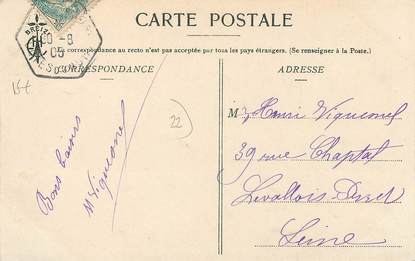 CARTE POSTALE
La correspondance au recto n'est pas acceptée par tous les pays étrangers. (Se renseigner à la Poste.)
CORRESPONDANCE
ADRESSE
20 -8
05
15€
22
Bons baisers
M Viquesnel
M Henri Viquesnel
39 rue Chaptal
Levallois Perret
Seine